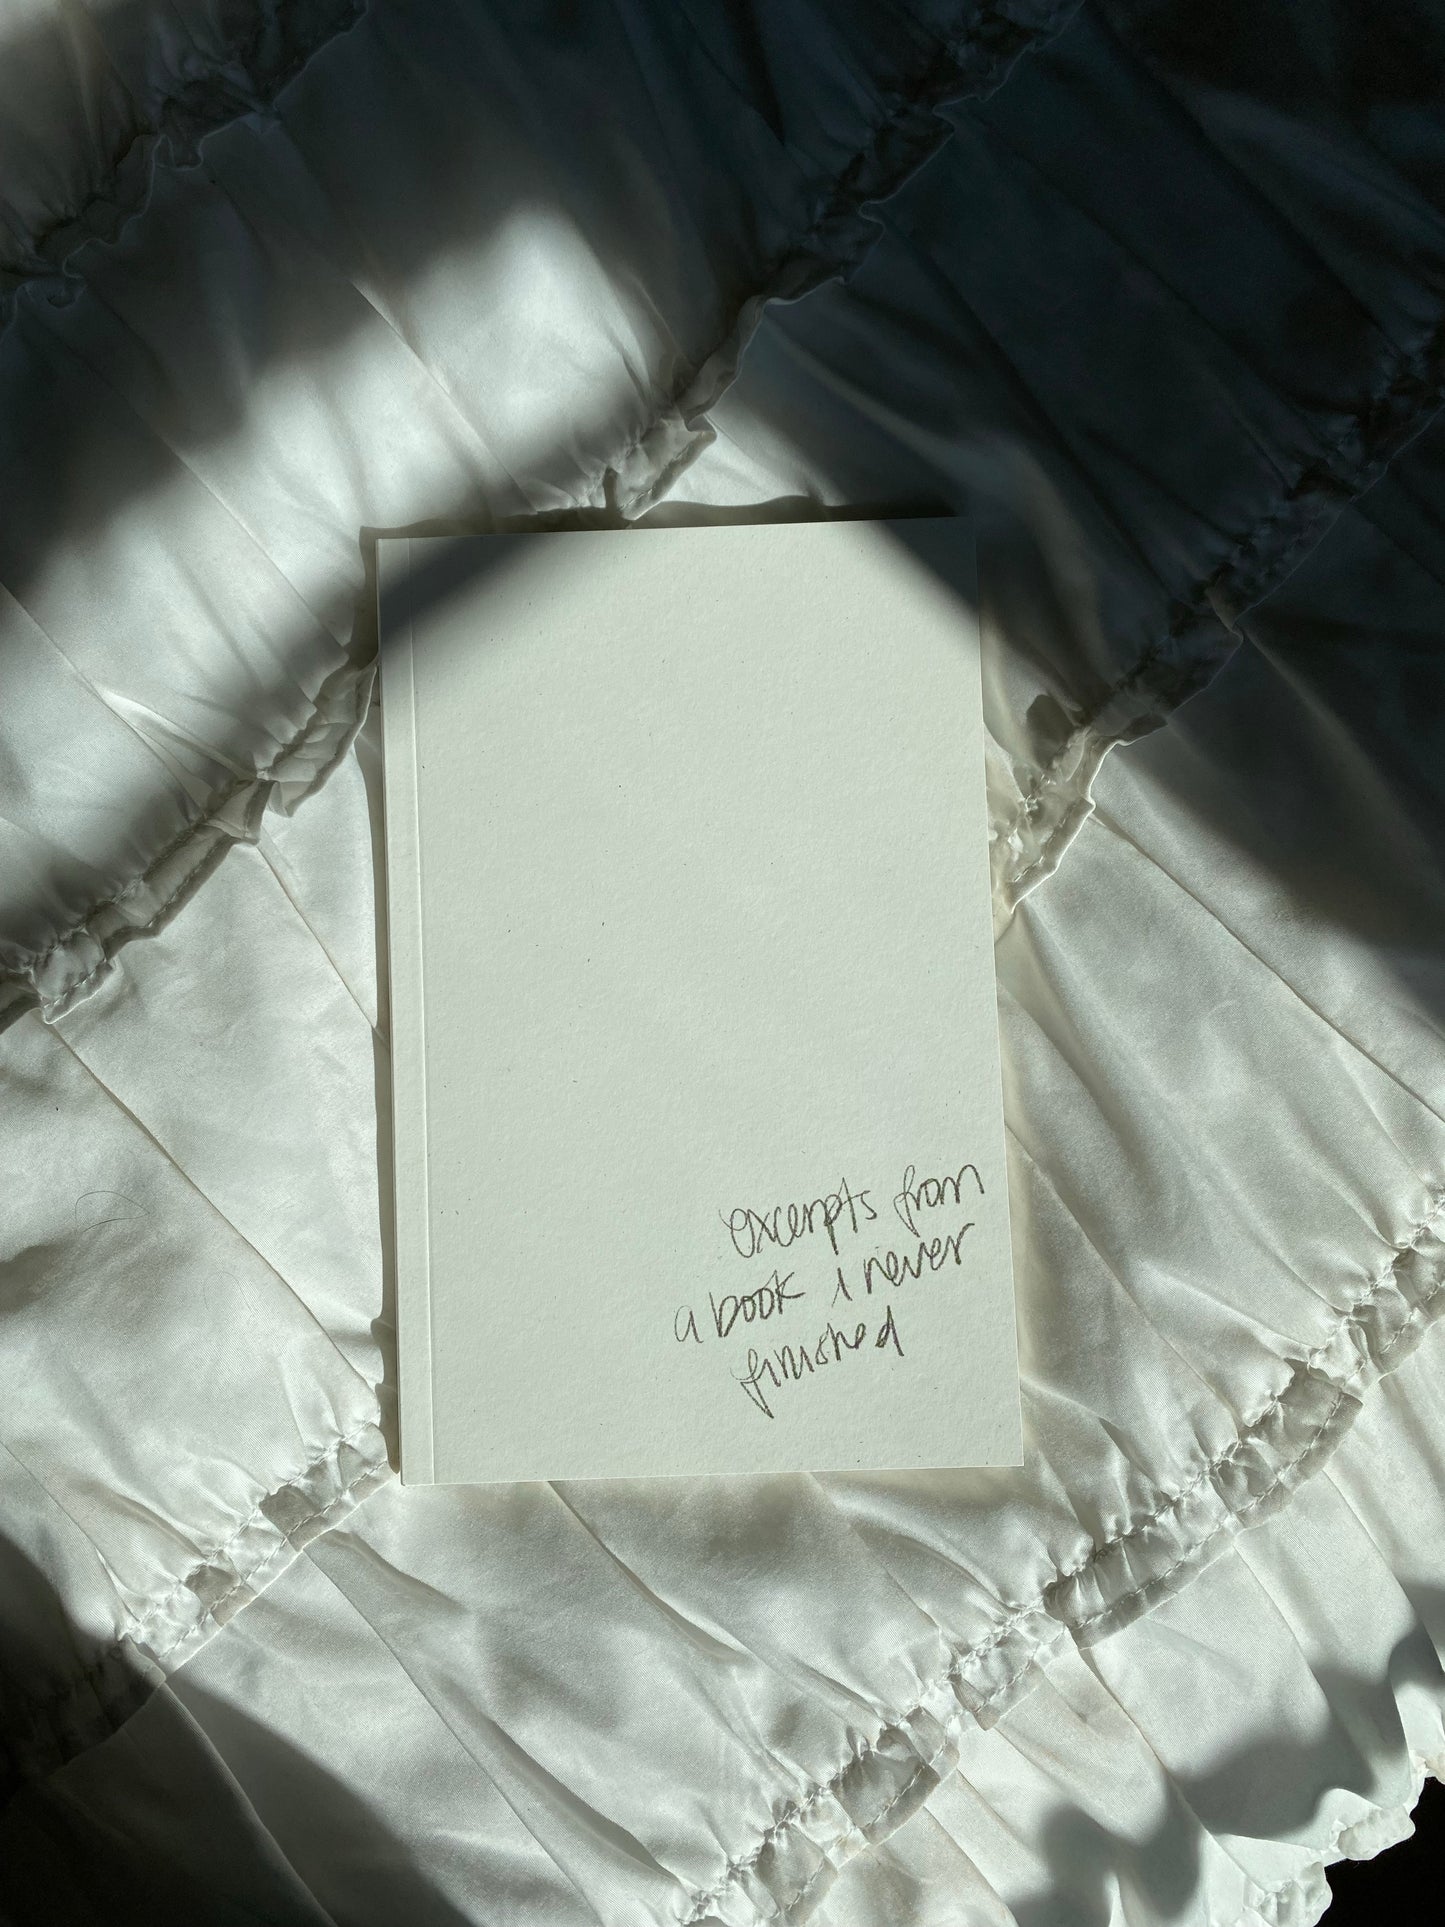 excerpts from
a book i never
finished